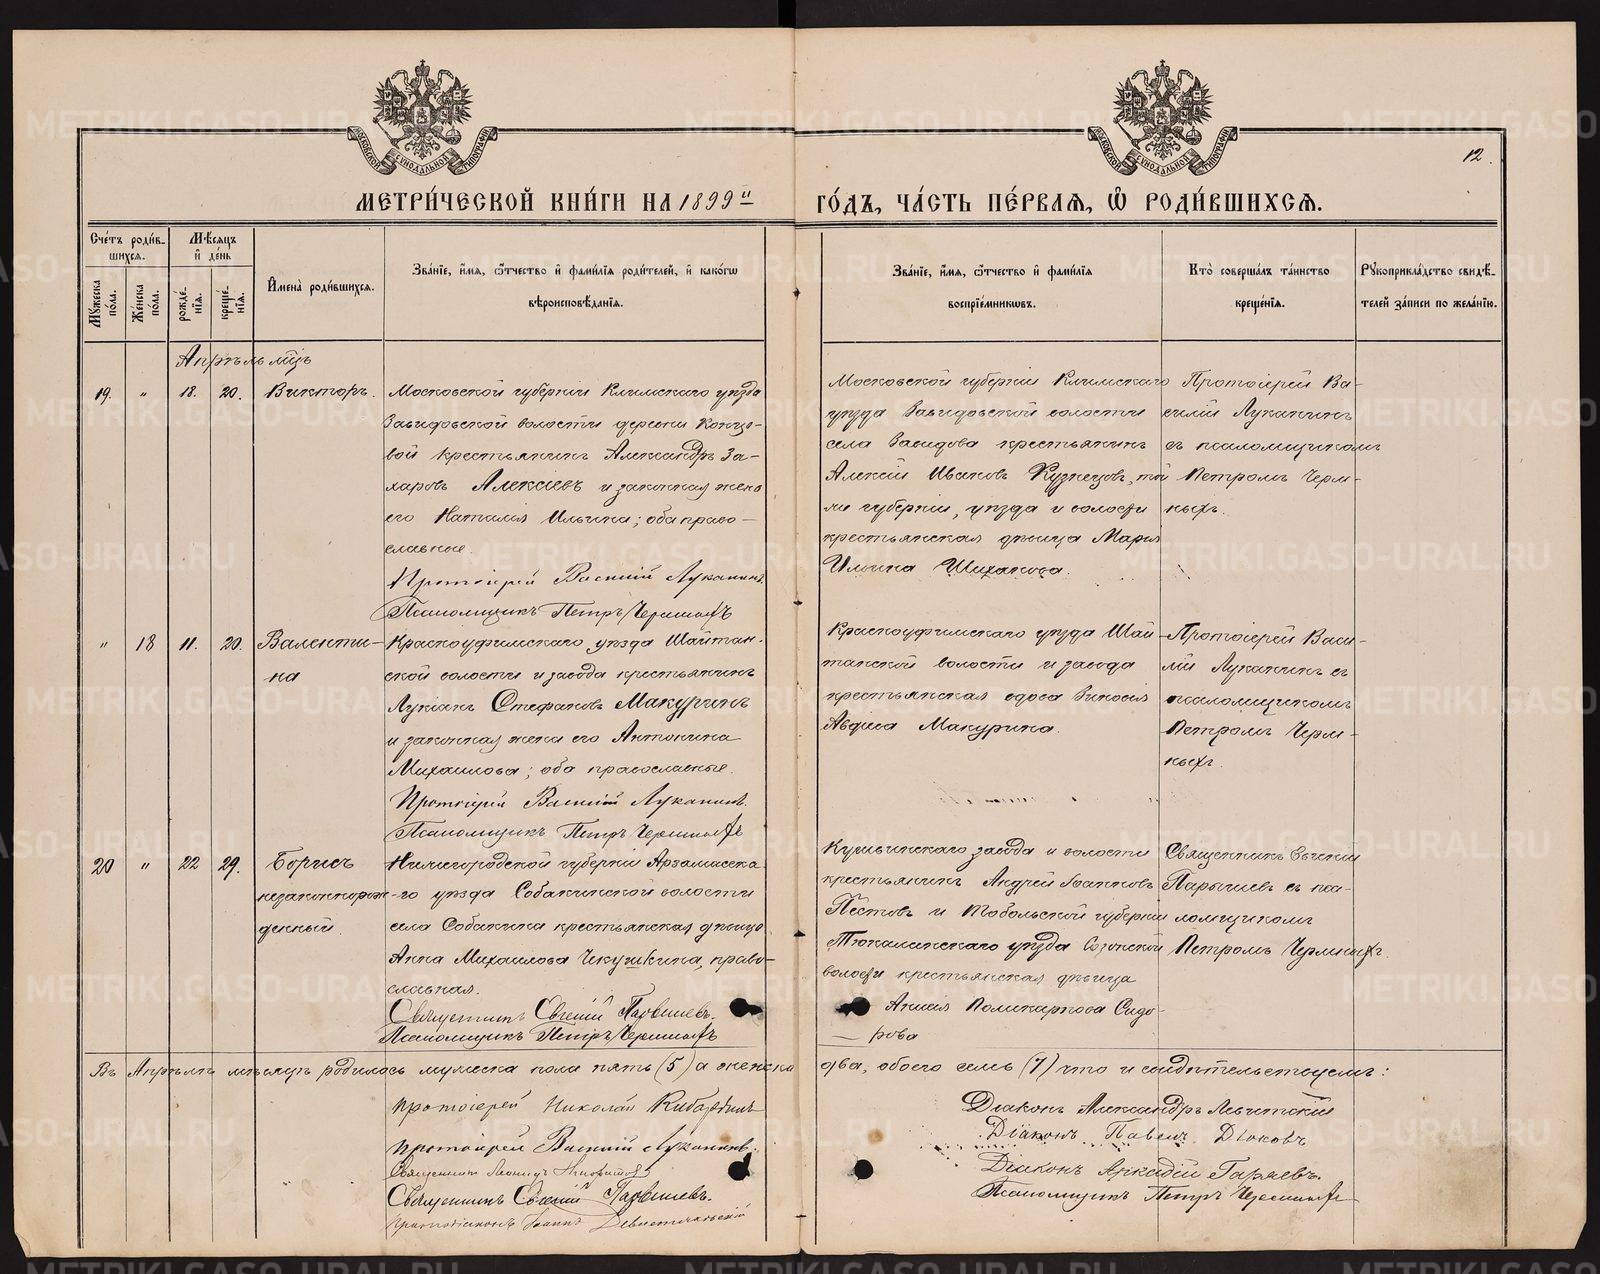 МЕТРИ́ЧЕСКОЙ КНИ́ГИ НА 1899й ГО́ДЪ, ЧА́СТЬ ПЕ́РВАЯ, Ѽ РОДИ́ВШИХСЯ.
12.
Сче́тъ роди́в-
шихся.
Мꙋжеска по́ла.
Же́нска по́ла.
Мѣ́сяцъ
и҆ де́нь
рожде́-
нїя.
креще́-
нїя.
И҆мена̀ роди́вшихся.
Зва́нїе, и҆́мя, ѻ҆́тчество и҆ фами́лїя роди́телей, и҆ како́гѡ
вѣроисповѣ́данїя.
Зва́нїе, и҆́мя, ѻ҆́тчество и҆ фами́лїя
воспрїе́мникѡвъ.
Кто̀ соверша́лъ та́инство
креще́нїя.
Рꙋкоприкла́дство свидѣ́-
телей за́писи по жела́нїю.
Апрѣль м̃цъ
19. " 18. 20. Викторъ.
Московской губерніи Клинскаго уѣзда
Завидовской волости деревни Концо-
вой крестьянинъ Александръ За-
харовъ Алексѣевъ и законная жена
его Наталія Ильина; оба право-
славные.
Протоіерей Василій Луканинъ.
Псаломщикъ Петръ Черемныхъ
Московской губерніи Клинскаго
уѣзда Завидовской волости
села Завидова крестьянинъ
Алексій Ивановъ Кузнецовъ, той
же губерніи, уѣзда и волости
крестьянская дѣвица Марья
Ильина Шиханова.
Протоіерей Ва-
силій Луканинъ
съ псаломщикомъ
Петромъ Черм-
ныхъ.
" 18 11. 20. Валенти-
на
Красноуфимскаго уѣзда Шайтан-
ской волости и завода крестьянинъ
Лукіанъ Стефановъ Макуринъ
и законная жена его Антонина
Михаилова; оба православные.
Протоіерей Василій Луканинъ.
Псаломщикъ Петръ Черемныхъ
Красноуфимскаго уѣзда Шай-
танской волости и завода
крестьянская вдова
Авдіева Макурина.
Протоіерей Васи-
лій Луканинъ съ
псаломщикомъ
Петромъ Черм-
ныхъ.
20 " 22 29. Борисъ
незаконнорож-
денный.
Нижегородской губерніи Арзамасска-
го уѣзда Собакинской волости
села Собакина крестьянская дѣвица
Анна Михаилова Чекушкина, право-
славная.
Священникъ Евгеній Парышевъ.
Псаломщикъ Петръ Черемныхъ
Кушвинскаго завода и волости
крестьянинъ Андрей Іоанновъ
Пестовъ и Тобольской губерніи
Тюкалинскаго уѣзда
волости крестьянская дѣвица
Анисія Поликарпова Сидо-
рова
Священникъ Евгеній
Парышевъ съ пса-
ломщикомъ
Петромъ Чермныхъ.
Въ Апрѣлѣ мѣсяцѣ родилось мужеска пола пять (5) а женска два, обоего семь (7) что и свидѣтельствуемъ:
Протоіерей Николай Кибардинъ
Протоіерей Василій Луканинъ.
Священникъ Леонидъ
Священникъ Евгеній Парышевъ.
Протодіаконъ Іоаннъ
Діаконъ Александръ Левитскій
Діаконъ Павелъ Дюковъ
Діаконъ Аркадій Гаряевъ.
Псаломщикъ Петръ Черемныхъ